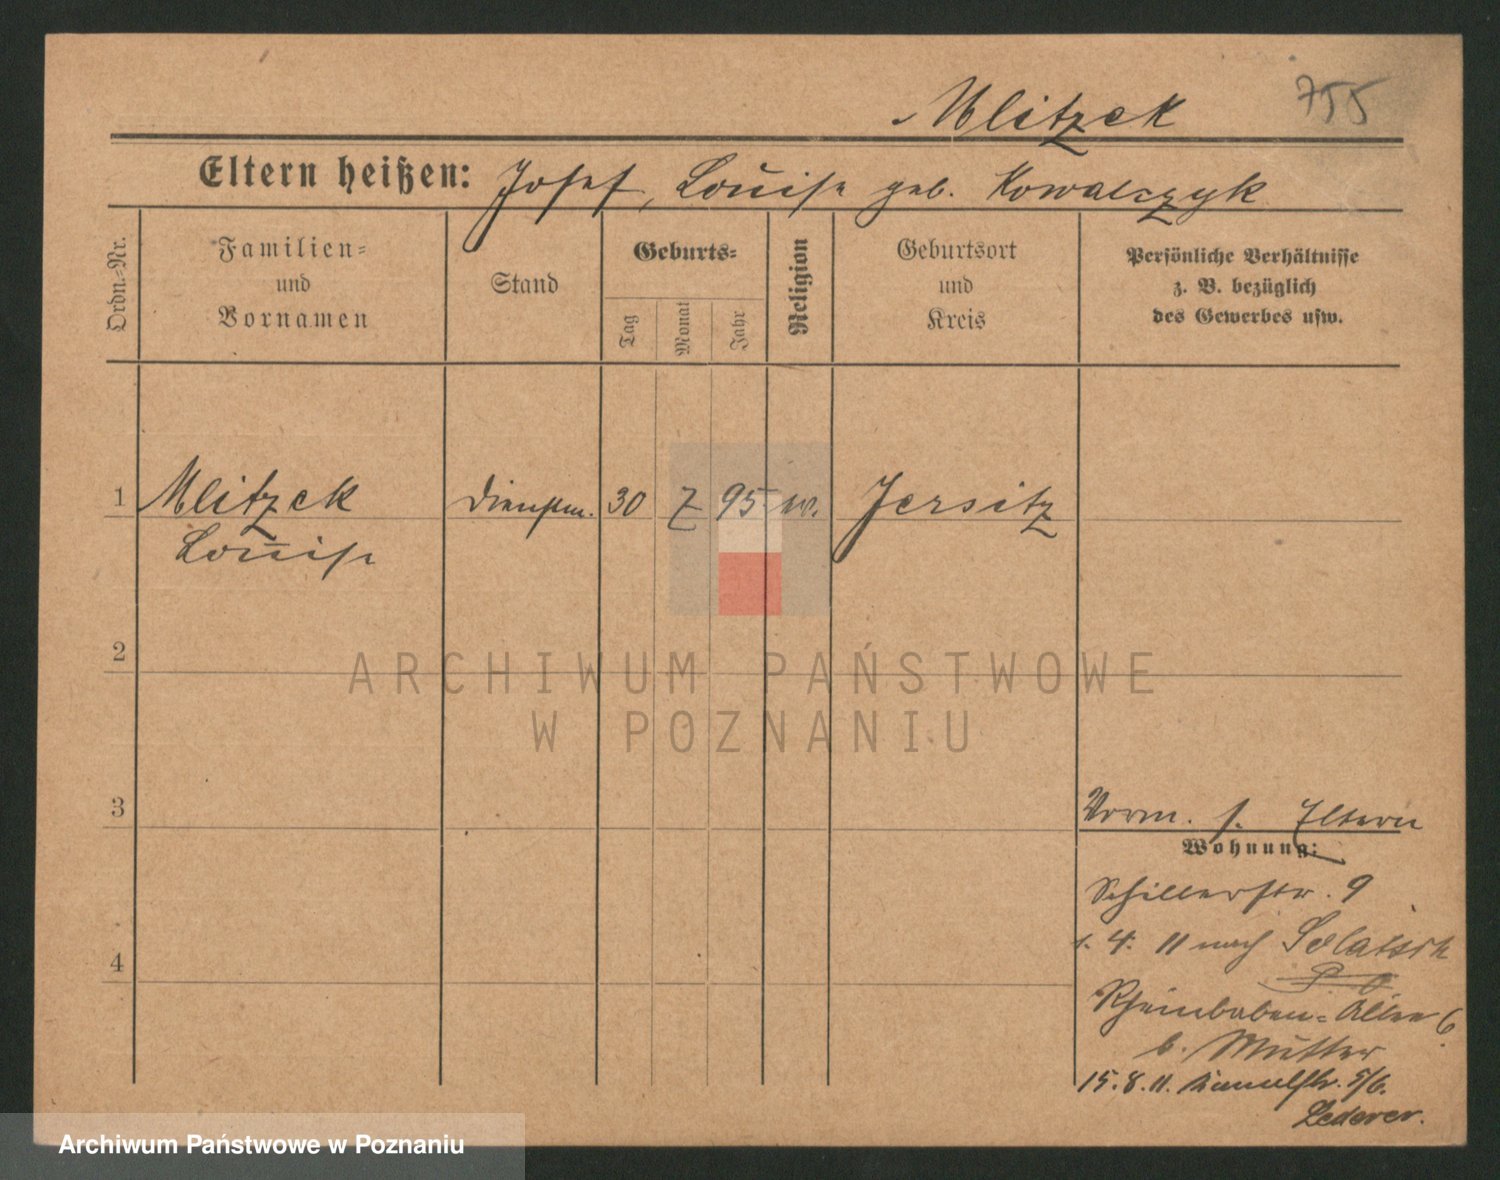 755
Mlitzek
Eltern heißen: Josef, Louise geb. Kowalczyk
Ordn.-Nr.
Familien-
und
Vornamen
Stand
Geburts-
Tag
Monat
Jahr
Religion
Geburtsort
und
Kreis
Persönliche Verhältnisse
z. B. bezüglich
des Gewerbes usw.
1 Mlitzek Dienstm. 30 7 95 Jersitz
Louise
2
ARCHIWUM PAŃSTWOWE
W POZNANIU
3
Vorm. s. Eltern
Wohnung:
Schillerstr. 9
4. 11 nach
4
Rheinbaben-Allee 6
b. Mutter
15.8.11. 5/6.
Lederer.
Archiwum Państwowe w Poznaniu